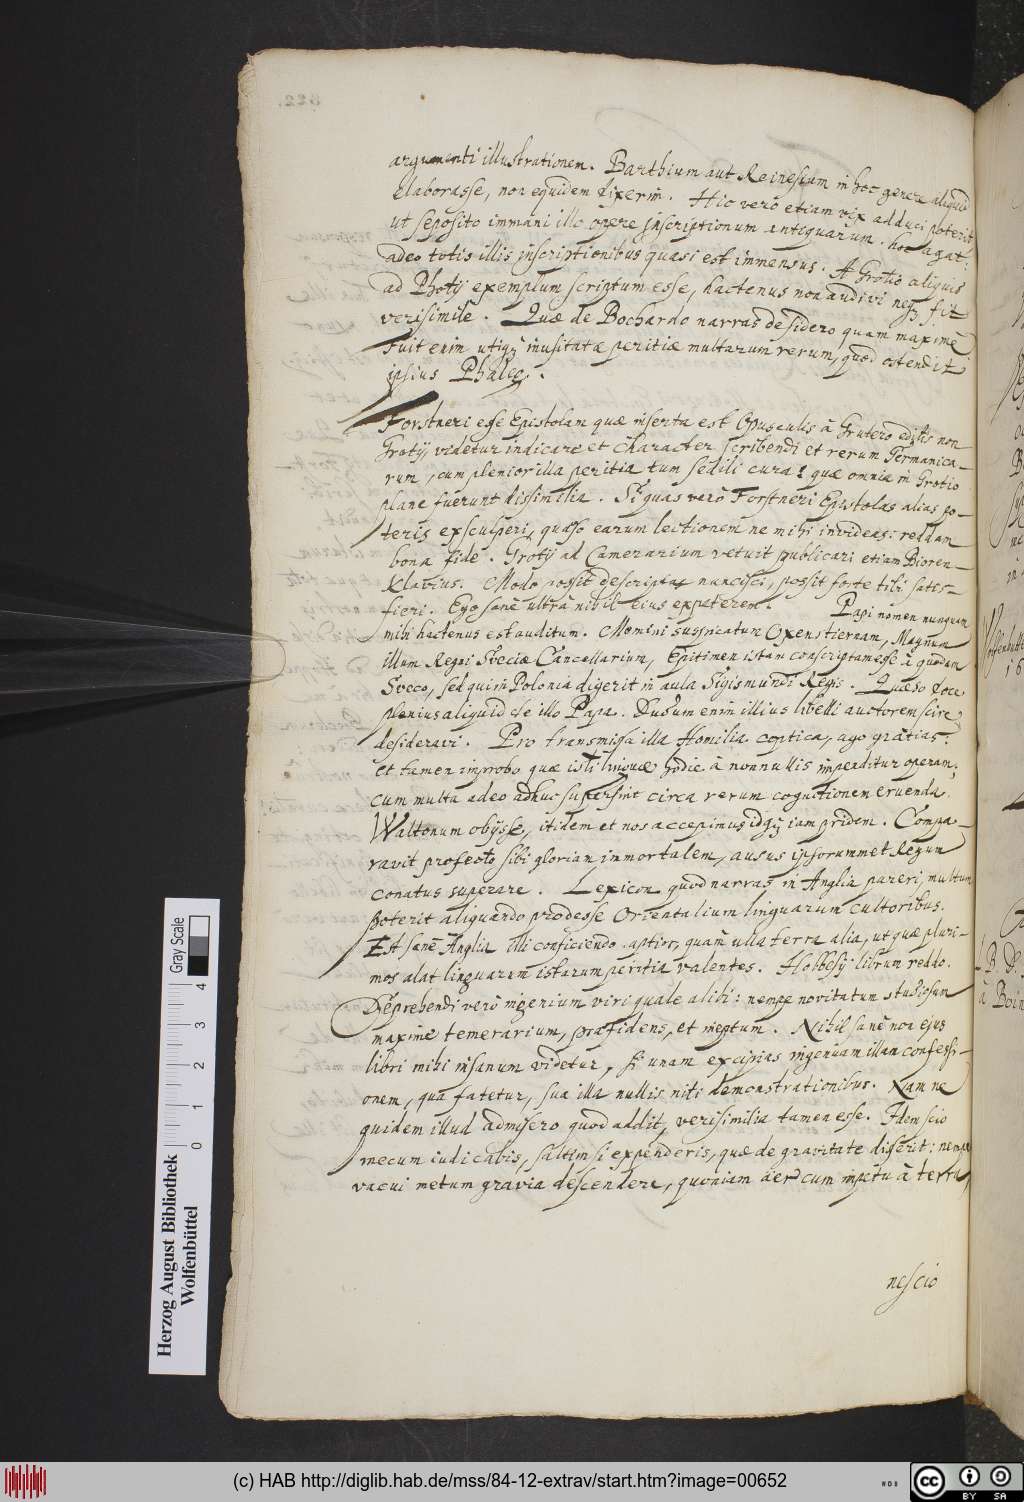 argumenti illustrationem. Barthium aut Reinesium in hoc genere aliquid
elaborasse, non equidem dixerim. Hic verò etiam vix adduci poterit
ut seposito immani illo opere inscriptionum antiquarum hoc agat:
adeo totis illis inscriptionibus quasi est immensus. A Grotio aliquid
ad Photij exemplum scriptum esse, hactenus non audivi neqꝫ fit
verisimile. Quæ de Bochardo narras desidero quam maximè
Fuit enim utiqꝫ inusitatæ peritiæ multarum rerum, quod ostendit
ipsius Phaleg.
Forstneri esse Epistolam quæ inserta est Opusculis à Grutero editis non
Grotij videtur indicare et character scribendi et rerum Germanica-
rum, cum plenior illa peritia tum sedili cura: quæ omnia in Grotio
plane fuerunt dissimilia. Si quas verò Forstneri Epistolas alias po-
teris exsculperi, quæso earum lectionem ne mihi invideas: reddam
bona fide. Grotij ad Camerarium vetuit publicari etiam Bioren-
Klavius. Modo possit descriptas nancisci, possit forte tibi satis-
fieri. Ego sanè ultrà nihil ejus expeterem. Papi nomen nunquam
mihi hactenus est auditum. Momini suspicatum Oxenstiernam, Magnum
illum Regni Sveciæ Cancellarium, Epitimen istam conscriptam esse à quodam
Sveco, sed qui in Polonia digerit in aula Sigismundi Regis. Quæso doce
plenius aliquid de illo Papa. Dudum enim illius libelli auctorem scire
desideravi. Pro transmissa illa Homilia coptica, ago gratias:
et tamen improbo quæ isti linguæ hodie à nonnullis impenditur operam;
cum multa adeo adhuc supersint circa rerum cognitionem eruenda.
Waltonum obijsse, itidem et nos accepimus idqꝫ iam pridem. Compa-
ravit profecto sibi gloriam immortalem, ausus ipsorummet Regum
conatus superare. Lexicon quod narras in Anglia pareri, multum
poterit aliquando prodesse Orientalium linguarum cultoribus.
Est sanè Anglia illi conficiendo aptior, quàm ulla terra alia, ut quæ pluri-
mos alat linguarum istarum peritia valentes. Hobbesij librum reddo.
Deprehendi verò ingenium viri quale alibi: nempe novitatum studiosum
maximè temerarium, præfidens, et ineptum. Nihil sanè non ejus
libri mihi insanum videtur, si unam excipias ingenuam illam confessi-
onem, qua fatetur, sua illa nullis niti demonstrationibus. Nam ne
quidem illud admisero quod addit, verisimilia tamen esse. Idem scio
mecum iudicabis, saltim si expenderis, quæ de gravitate diserit: nempe
vacui metum gravia descendere, quoniam aër cum impetu à terra,
nescio
Herzog August Bibliothek
Wolfenbüttel
0 1 2 3 4
Gray Scale
(c) HAB http://diglib.hab.de/mss/84-12-extrav/start.htm?image=00652
cc BY SA